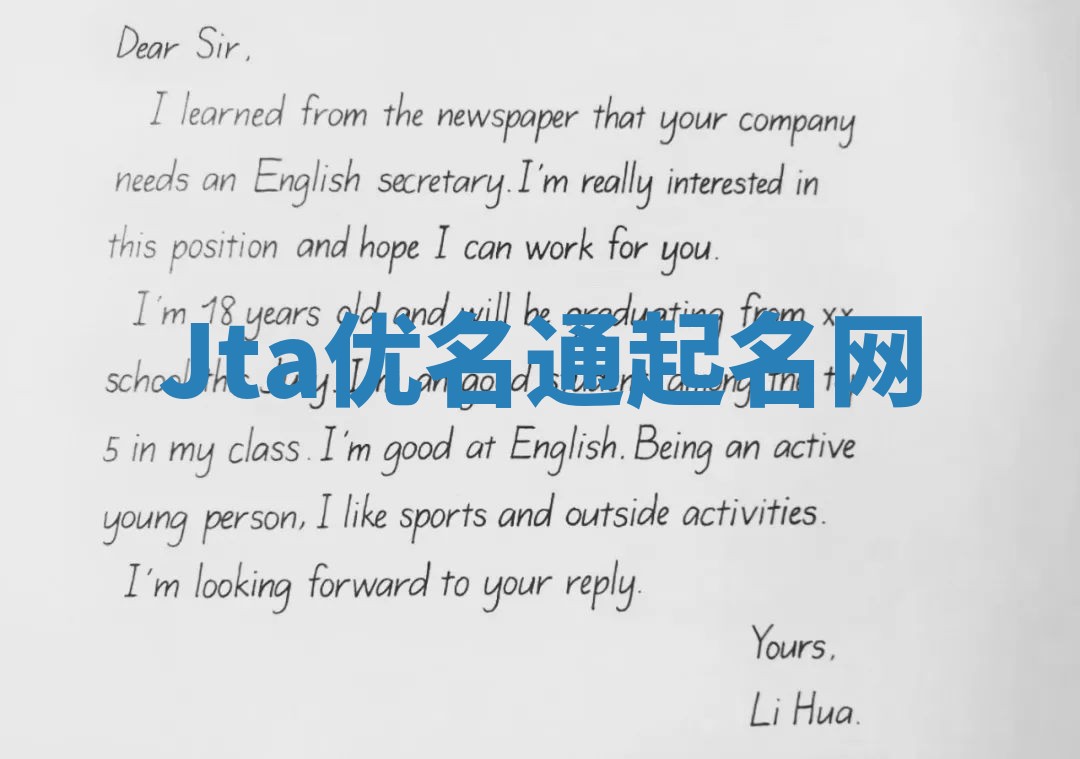 Dear Sir,
I learned from the newspaper that your company
needs an English secretary. I'm really interested in
this position and hope I can work for you.
I'm 18 years old and will be graduating from xx
Jta优名通起名网
school this July. I'm a good student among the top
5 in my class. I'm good at English. Being an active
young person, I like sports and outside activities.
I'm looking forward to your reply.
Yours,
Li Hua.